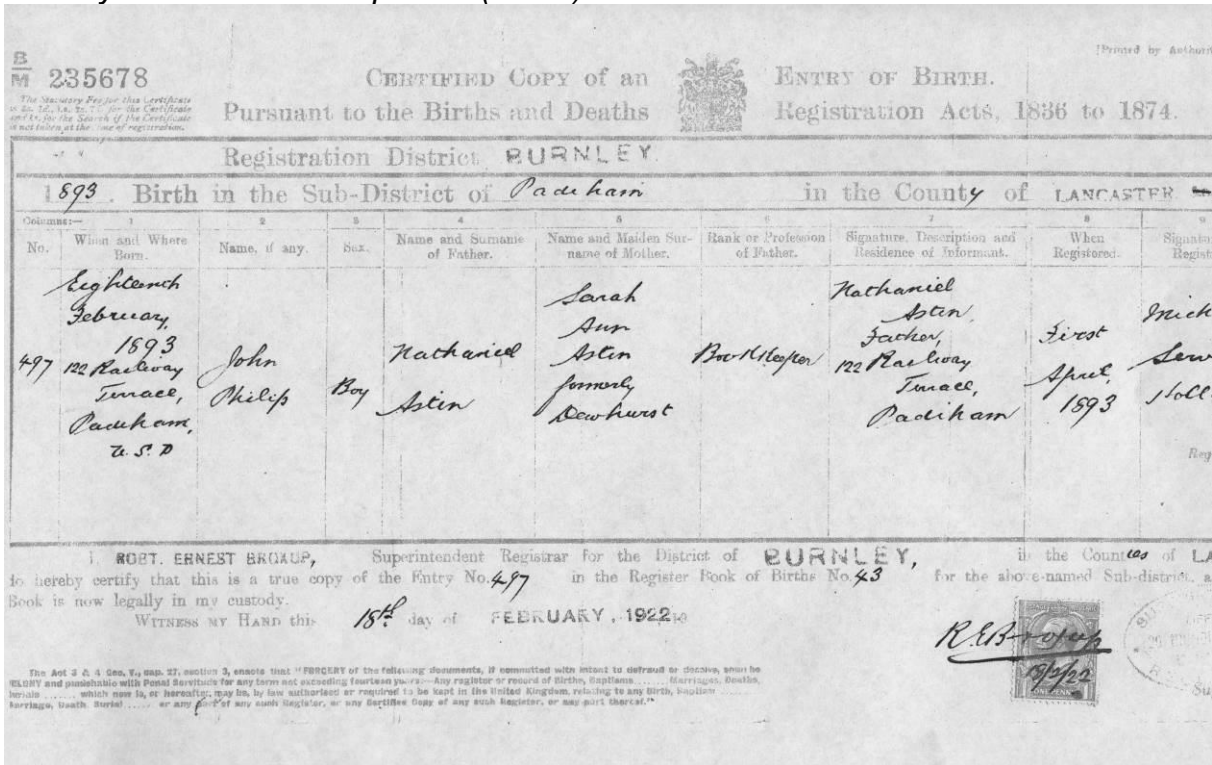 B
M 235678
CERTIFIED COPY of an ENTRY OF BIRTH.
[Printed by Authori
The Statutory Fee for this Certificate
and 1s. for the Search if the Certificate
is not taken at the time of registration.
Pursuant to the Births and Deaths Registration Acts, 1836 to 1874.
Registration District BURNLEY.
1893. Birth in the Sub-District of Padiham in the County of LANCASTER
Columns:— 1 2 3 4 5 6 7 8 9
No. When and Where Born. Name, if any. Sex. Name and Surname of Father. Name and Maiden Surname of Mother. Rank or Profession of Father. Signature, Description and Residence of Informant. When Registered. Signatu Regist
497
Eighteenth
February,
1893
122 Railway
Terrace,
Padiham,
U.S.D
John
Philip
Boy
Nathaniel
Astin
Sarah
Ann
Astin
formerly
Dewhurst
Bookkeeper
Nathaniel
Astin
Father,
122 Railway
Terrace,
Padiham
First
April,
1893
Mich
Serv
Holl
Reg
I, ROBT. ERNEST BROXUP, Superintendent Registrar for the District of BURNLEY, in the Counties of LA
do hereby certify that this is a true copy of the Entry No. 497 in the Register Book of Births No. 43 for the above-named Sub-district,
Book is now legally in my custody.
WITNESS MY HAND this 18th day of FEBRUARY, 1922
R.E.Broxup
18/2/22
ONE PENNY
Su
The Act 3 & 4 Geo. V., cap. 27, section 3, enacts that "FORGERY of the following documents, if committed with intent to defraud or deceive, shall be
FELONY and punishable with Penal Servitude for any term not exceeding fourteen years:—Any register or record of Births, Baptisms ....... Marriages, Deaths,
Burials ....... which now is, or hereafter may be, by law authorised or required to be kept in the United Kingdom, relating to any Birth, Baptism .......
Marriage, Death, Burial ....... or any part of any such Register, or any Certified Copy of any such Register, or any part thereof."